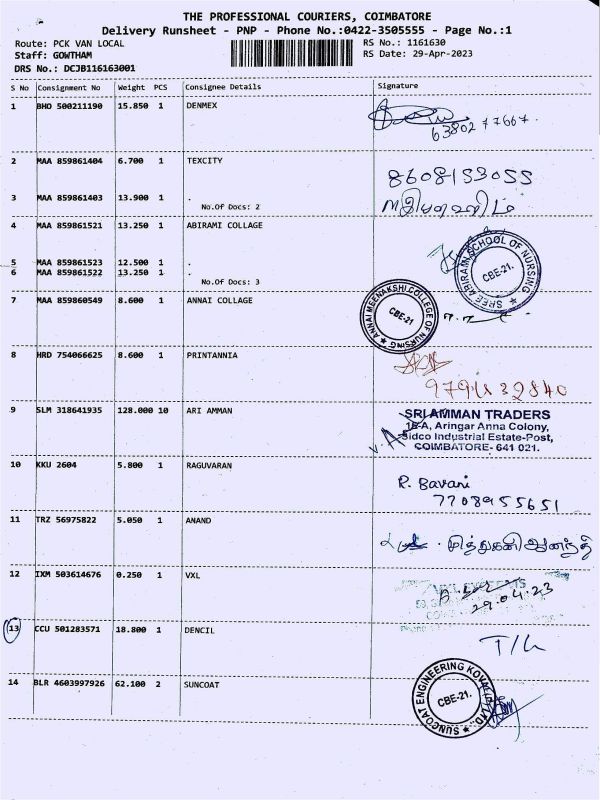 THE PROFESSIONAL COURIERS, COIMBATORE
Delivery Runsheet - PNP - Phone No.:0422-3505555 - Page No.:1
Route: PCK VAN LOCAL
RS No.: 1161630
Staff: GOWTHAM
RS Date: 29-Apr-2023
DRS No.: DCJB116163001
S No Consignment No Weight PCS Consignee Details Signature
1 BHO 500211190 15.850 1 DENMEX
63802 77667.
2 MAA 859861404 6.700 1 TEXCITY
8608153055
3 MAA 859861403 13.900 1 .
No.Of Docs: 2
4 MAA 859861521 13.250 1 ABIRAMI COLLAGE
SREE ABIRAMI SCHOOL OF NURSING
CBE-21.
5 MAA 859861523 12.500 1 .
6 MAA 859861522 13.250 1 .
No.Of Docs: 3
7 MAA 859860549 8.600 1 ANNAI COLLAGE
ANNAI MEENAKSHI COLLEGE OF NURSING
CBE-21
8 HRD 754066625 8.600 1 PRINTANNIA
9791832840
9 SLM 318641935 128.000 10 ARI AMMAN
SRI AMMAN TRADERS
Aringar Anna Colony,
Sidco Industrial Estate-Post,
COIMBATORE- 641 021.
10 KKU 2604 5.800 1 RAGUVARAN
R. Bavani
7708955651
11 TRZ 56975822 5.050 1 ANAND
12 IXM 503614676 0.250 1 VXL
29.04.23
13 CCU 501283571 18.800 1 DENCIL
14 BLR 4603997926 62.100 2 SUNCOAT
SUNCOAT ENGINEERING KOVAI (P) LTD.,
CBE-21.